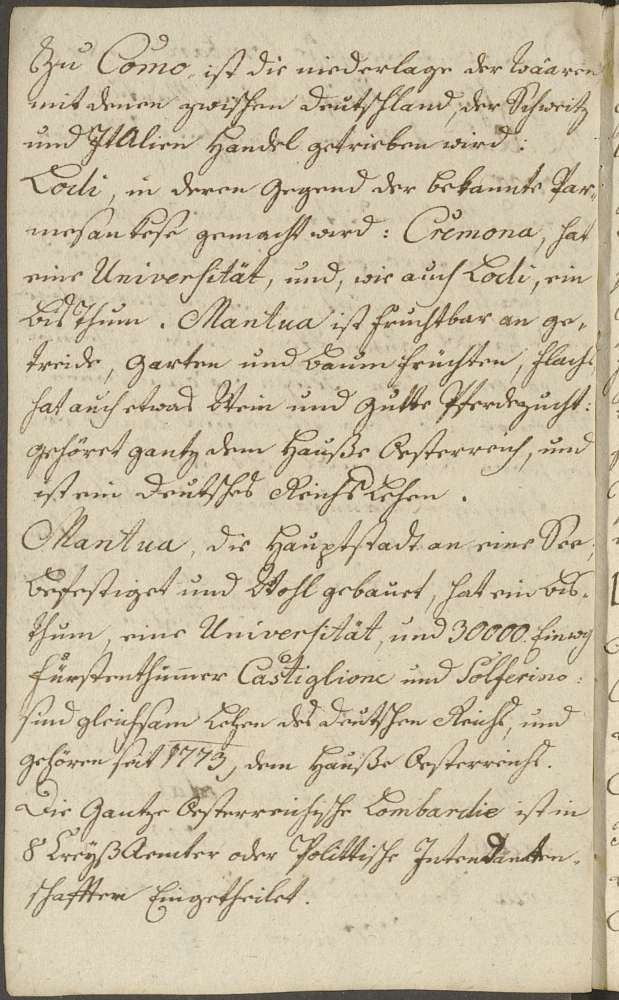 Zu Como, ist die niederlage der Wäären
mit denen zwischen Deutschland, der Schweitz
und Italien Handel getrieben wird:
Lodi, in deren Gegend der bekannte Par„
mesankese gemacht wird: Cremona, hat
eine Universität, und, wie auch Lodi, ein
bisthum. Mantua ist fruchtbar an ge„
treide, Garten und baum früchten, flachs
hat auch etwas Wein und gutte Pferdezucht:
gehöret gantz dem Hauße Oesterreich, und
ist ein Deutsches Reichs Lehen.
Mantua, die Hauptstadt an eine See,
befestiget und Wohl gebauet, hat ein bis„
thum, eine Universität, und 30000. Einwo
Fürstenthümer Castiglione und Solferino:
sind gleichsam Lehen des Deutschen Reichs, und
gehören seit 1773, dem Hauße Oesterreichs.
Die Gantze Oesterreichische Lombardie ist in
8 Creyß Aemter oder Polittische Intendanten„
schafften Eingetheilet.